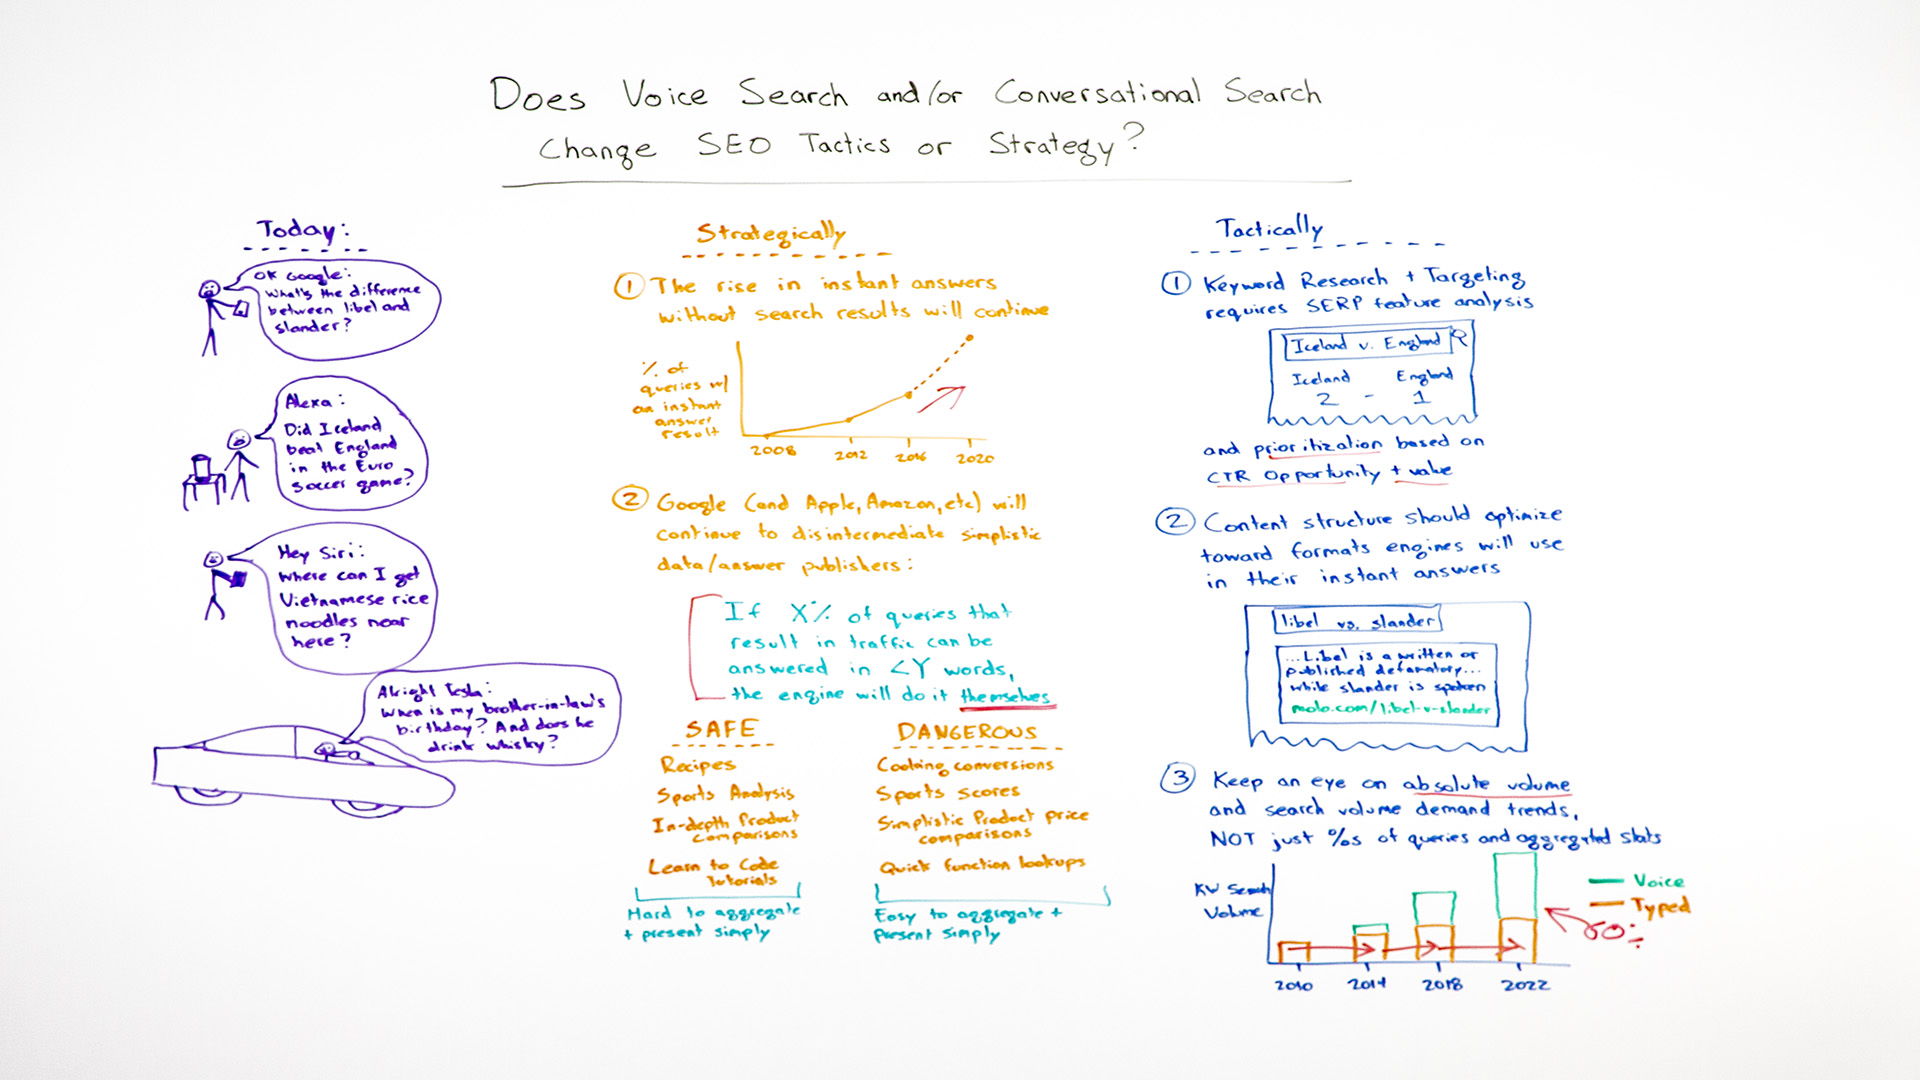 Does Voice Search and/or Conversational Search
Change SEO Tactics or Strategy?
Today:
OK Google:
What's the difference
between libel and
slander?
Alexa:
Did Iceland
beat England
in the Euro
soccer game?
Hey Siri:
Where can I get
Vietnamese rice
noodles near
here?
Alright Tesla:
When is my brother-in-law's
birthday? And does he
drink whisky?
Strategically
1 The rise in instant answers
without search results will continue
% of
queries w/
an instant
answer
result
2008 2012 2016 2020
2 Google (and Apple, Amazon, etc) will
continue to disintermediate simplistic
data/answer publishers:
If X% of queries that
result in traffic can be
answered in <Y words,
the engine will do it themselves
SAFE
Recipes
Sports Analysis
In-depth Product
comparisons
Learn to Code
Tutorials
Hard to aggregate
+ present simply
DANGEROUS
Cooking conversions
Sports scores
Simplistic Product price
comparisons
Quick function lookups
Easy to aggregate +
present simply
Tactically
1 Keyword Research + Targeting
requires SERP feature analysis
Iceland v. England
Iceland England
2 - 1
and prioritization based on
CTR opportunity + value
2 Content structure should optimize
toward formats engines will use
in their instant answers
libel vs. slander
...Libel is a written or
published defamatory...
while slander is spoken
3 Keep an eye on absolute volume
and search volume demand trends,
NOT just %s of queries and aggregated stats
KW Search
Volume
Voice
Typed
2010 2014 2018 2022